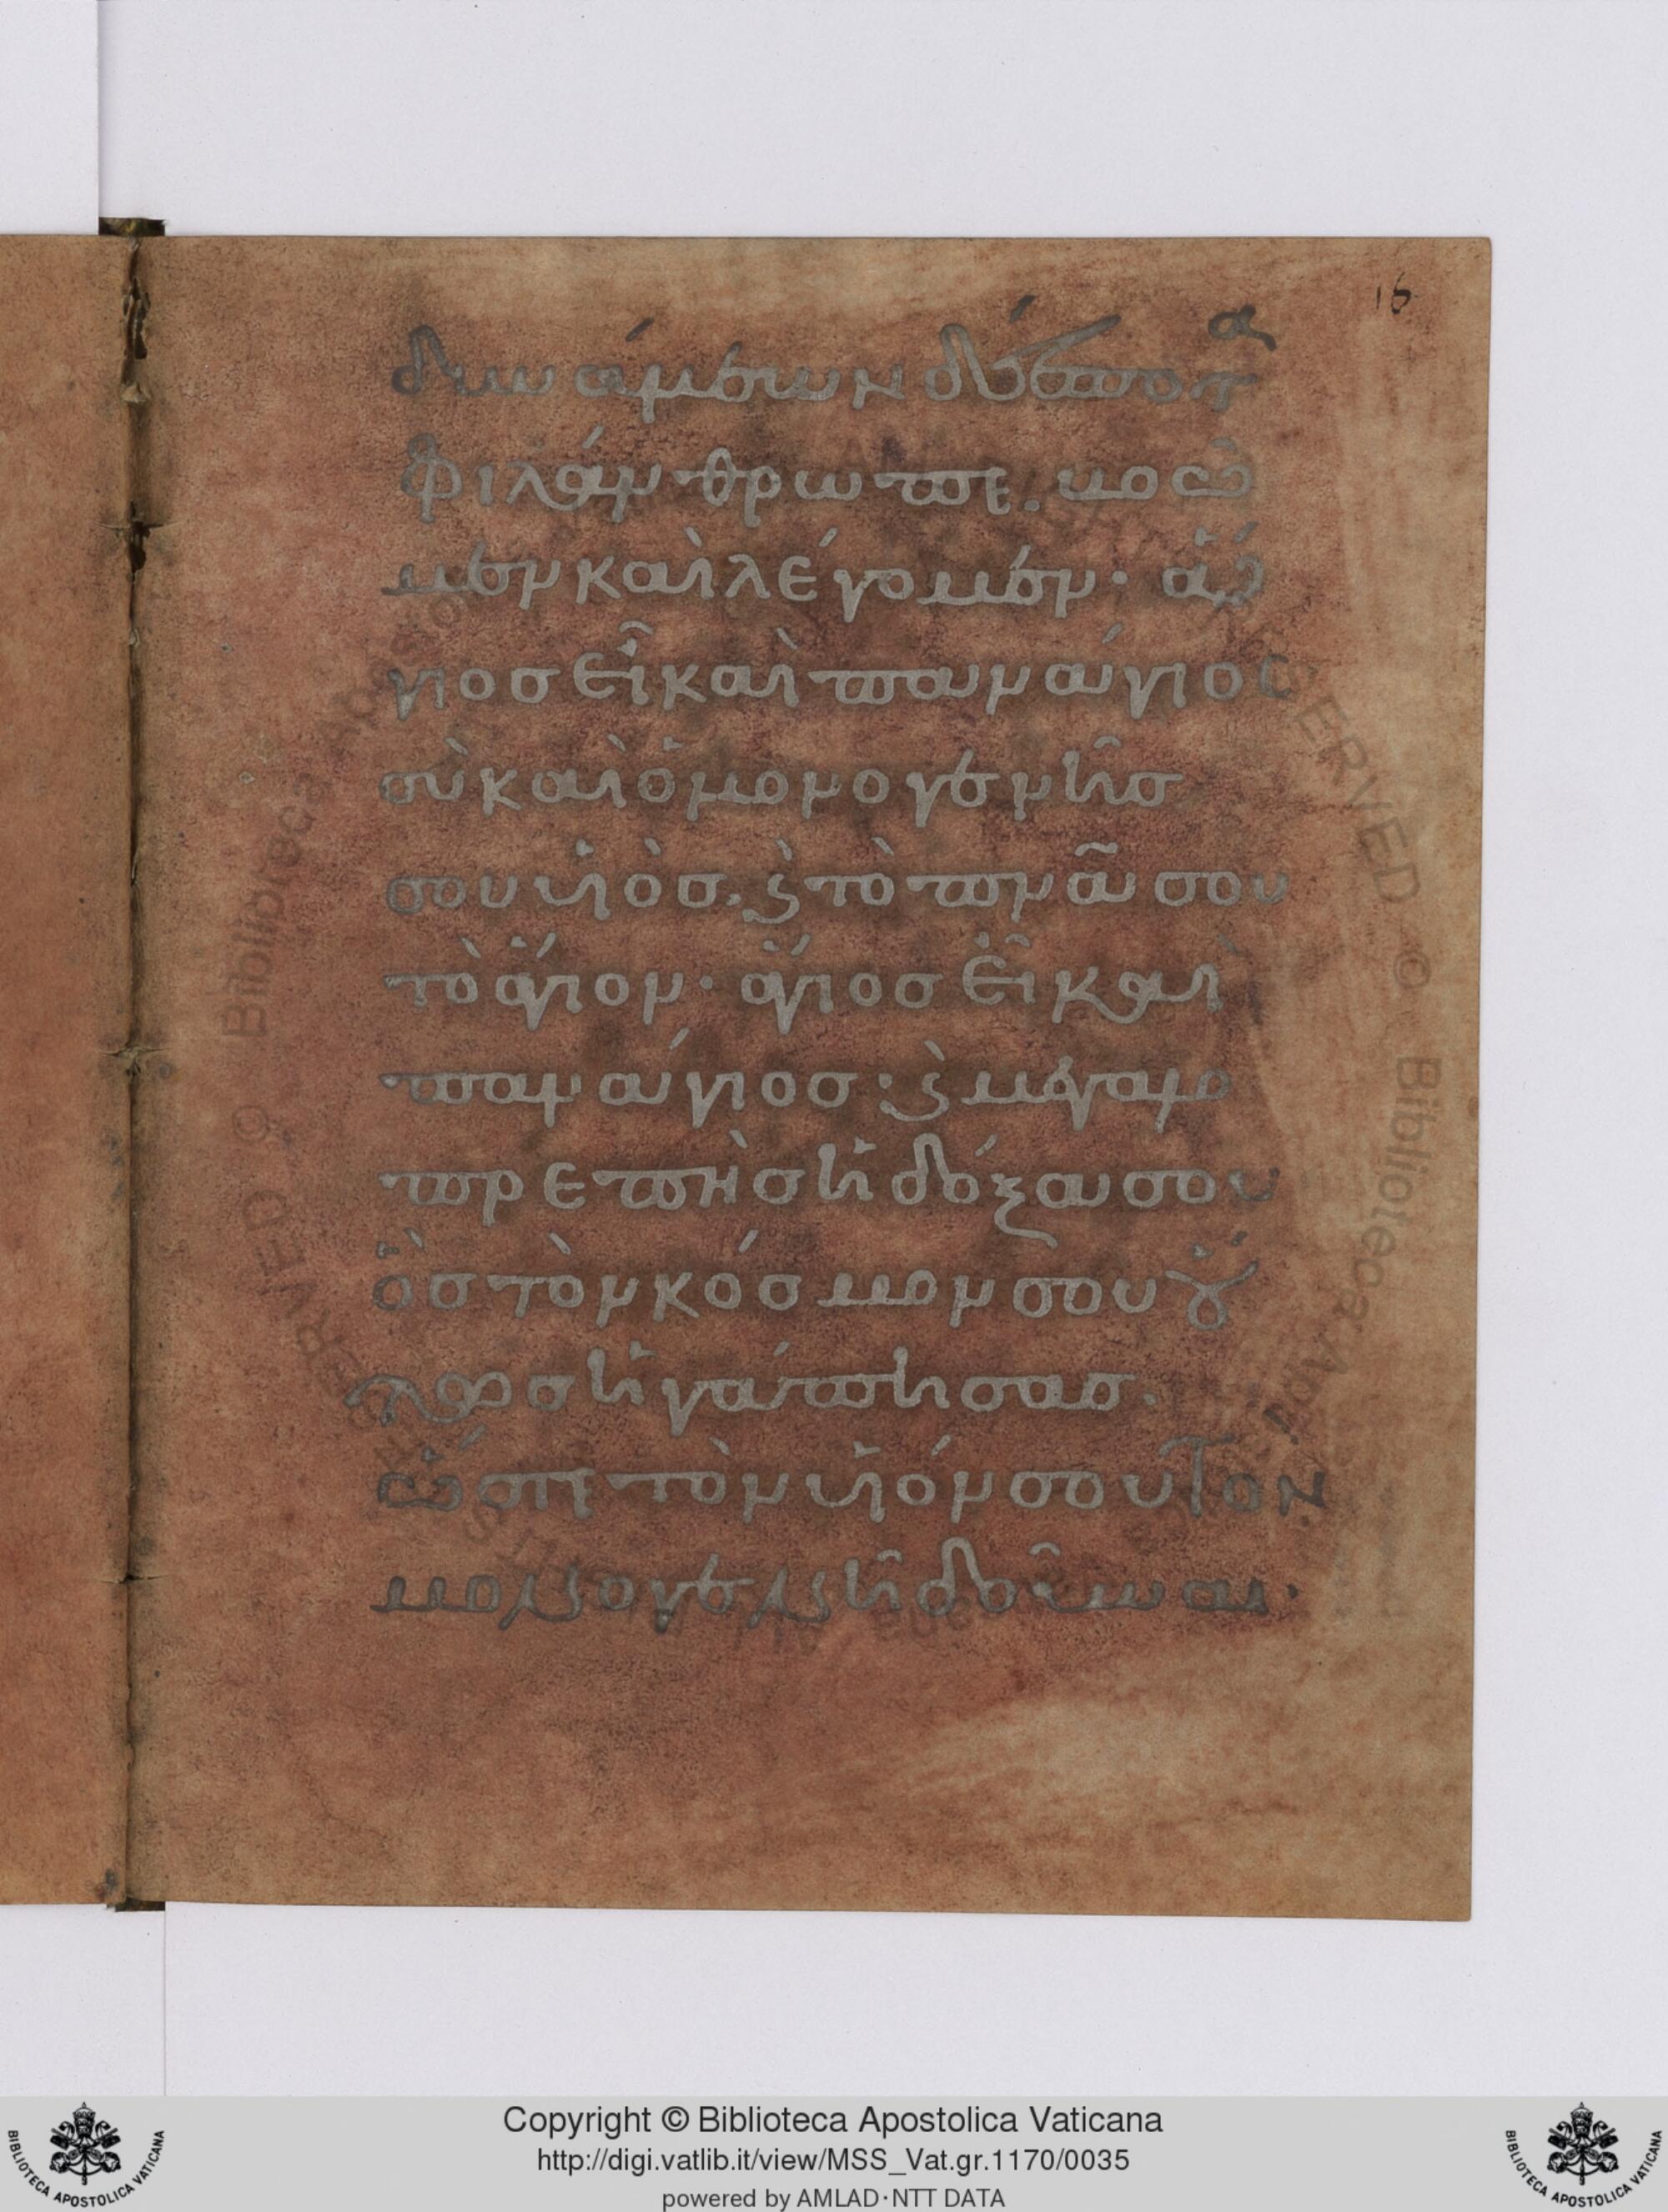 16
δυνάμεων δέσποτα
φιλάνθρωπε. βοῶ
μεν καὶ λέγομεν· ἅ
γιος εἶ καὶ πανάγιος
σὺ καὶ ὁ μονογενής
σου υἱὸς. ϛ τὸ πνᾶ σου
τὸ ἅγιον· ἅγιος εἶ καὶ
πανάγιος· ϛ μεγαλο
πρεπὴς ἡ δόξα σου
ὃς τὸν κόσμον σου οὕ
τως ἠγάπησας.
ὥστε τὸν υἱόν σου τὸν
μονογενῆ δοῦναι·
Copyright © Biblioteca Apostolica Vaticana
http://digi.vatlib.it/view/MSS_Vat.gr.1170/0035
powered by AMLAD·NTT DATA
BIBLIOTECA APOSTOLICA VATICANA
BIBLIOTECA APOSTOLICA VATICANA